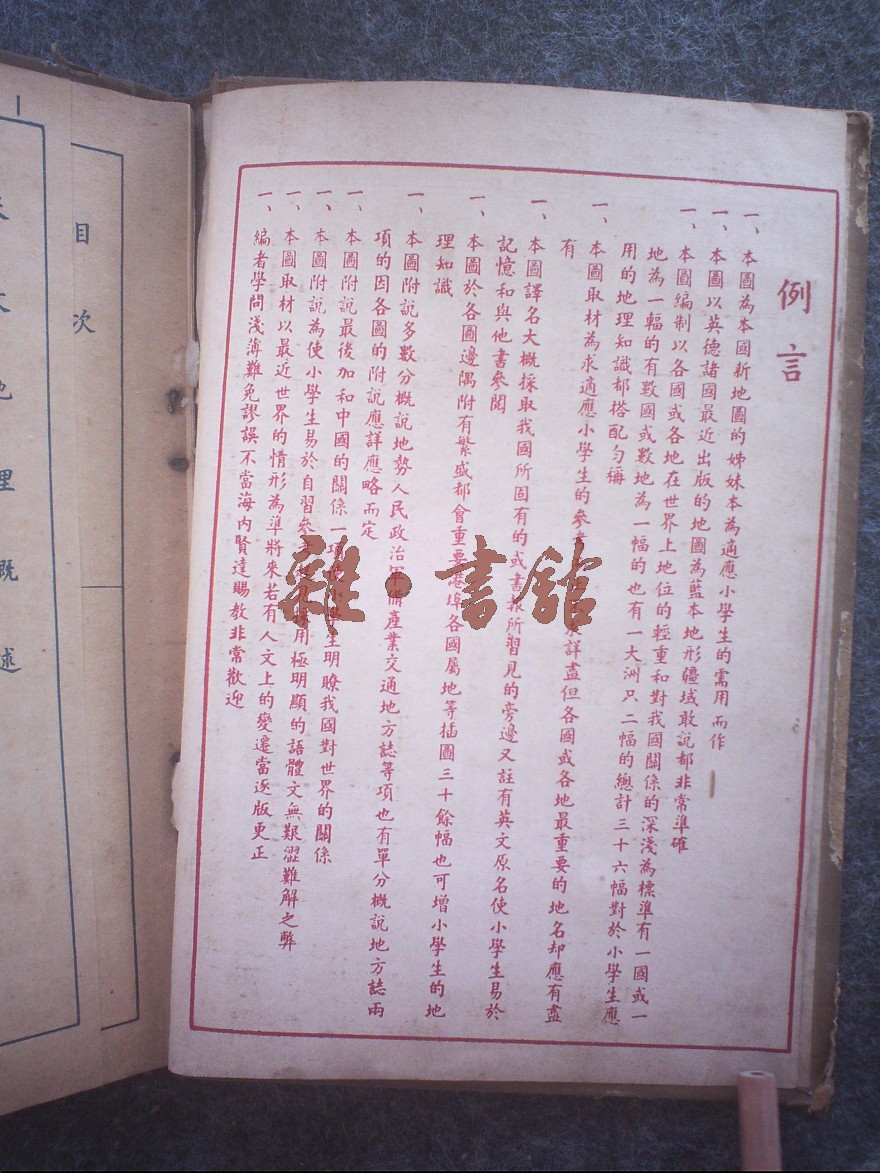 例言
一、本圖為本國新地圖的姊妹本為適應小學生的需用而作
一、本圖以英德諸國最近出版的地圖為藍本地形疆域敢說都非常準確
一、本圖編制以各國或各地在世界上地位的輕重和對我國關係的深淺為標準有一國或一
地為一幅的有數國或數地為一幅的也有一大洲只二幅的總計三十六幅對於小學生應
用的地理知識都搭配勻稱
一、本圖取材為求適應小學生的參考詳盡但各國或各地最重要的地名却應有盡
有
一、本圖譯名大概採取我國所固有的或書報所習見的旁邊又註有英文原名使小學生易於
記憶和與他書參閱
一、本圖於各圖邊隅附有繁盛都會重要港埠各國屬地等插圖三十餘幅也可增小學生的地
理知識
一、本圖附說多數分概說地勢人民政治軍備產業交通地方誌等項也有單分概說地方誌兩
項的因各圖的附說應詳應略而定
一、本圖附說最後加和中國的關係一項使小學生明瞭我國對世界的關係
一、本圖附說為使小學生易於自習參採用極明顯的語體文無艱澀難解之弊
一、本圖取材以最近世界的情形為準將來若有人文上的變遷當逐版更正
一、編者學問淺薄難免謬誤不當海內賢達賜教非常歡迎
目次
地理概述
雜·書館